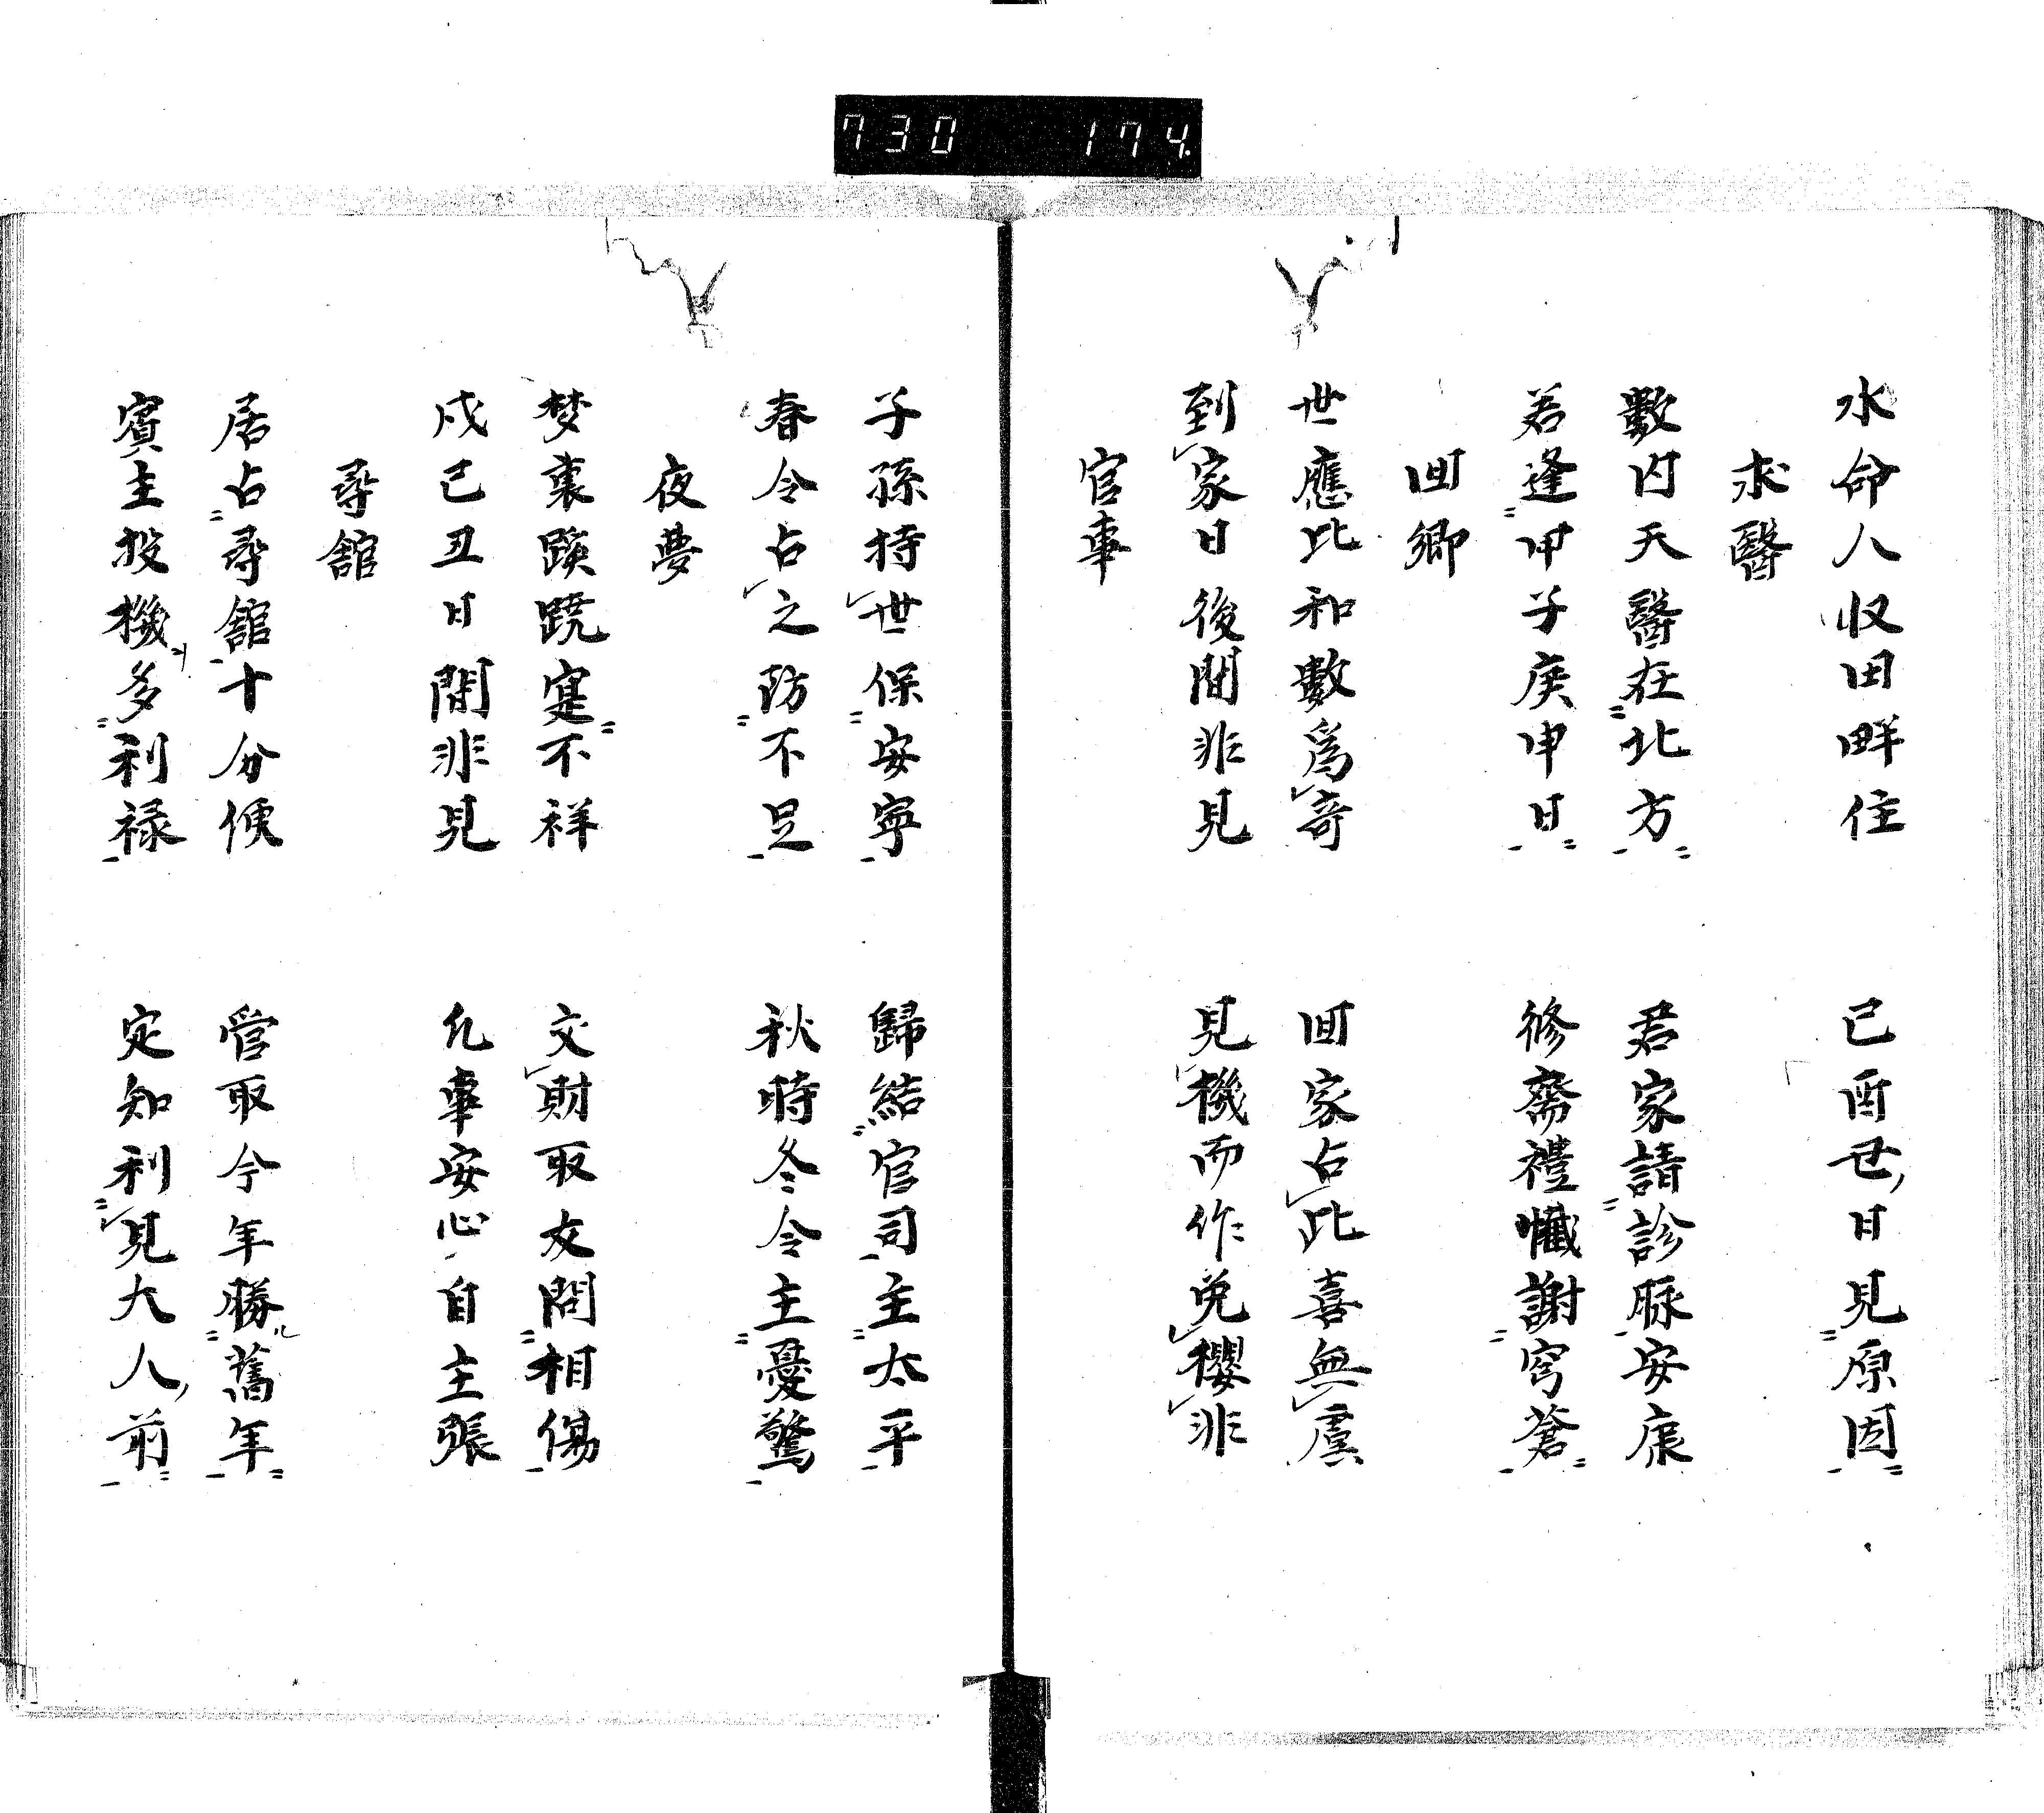 730 174
水命人収田畔住 己酉丑日見原因
求醫
數内天醫在北方 君家請診脉安康
若逢甲子庚申日 修齋禮懺謝穹蒼
回鄉
世應比和數爲奇 回家占此喜無虞
到家日後閒非見 見機而作免櫻非
官事
子孫持世保安寧 歸結官司主太平
春令占之防不足 秋時冬令主憂驚
夜夢
梦裏蹊蹺寔不祥 文財取友問相傷
戍己丑日閒非見 凢事安心自主張
尋舘
居占尋舘十分便 管取今年勝舊年
賓主投機多利禄 定知利見大人前